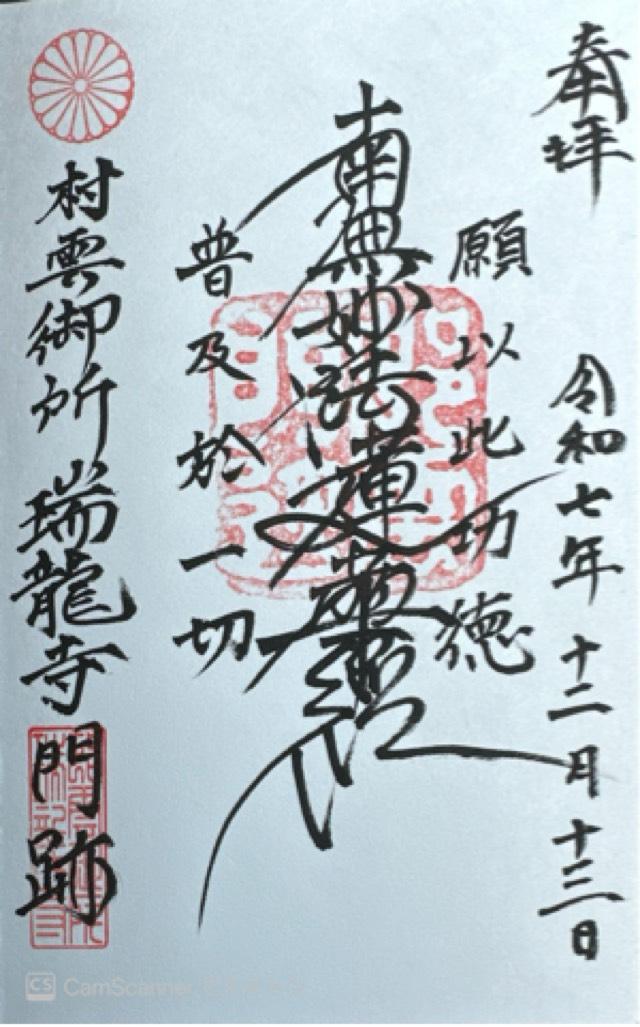 奉拝
令和七年十二月十三日
願以此功徳
南無妙法蓮華経
普及於一切
村雲御所瑞龍寺門跡
CS CamScanner